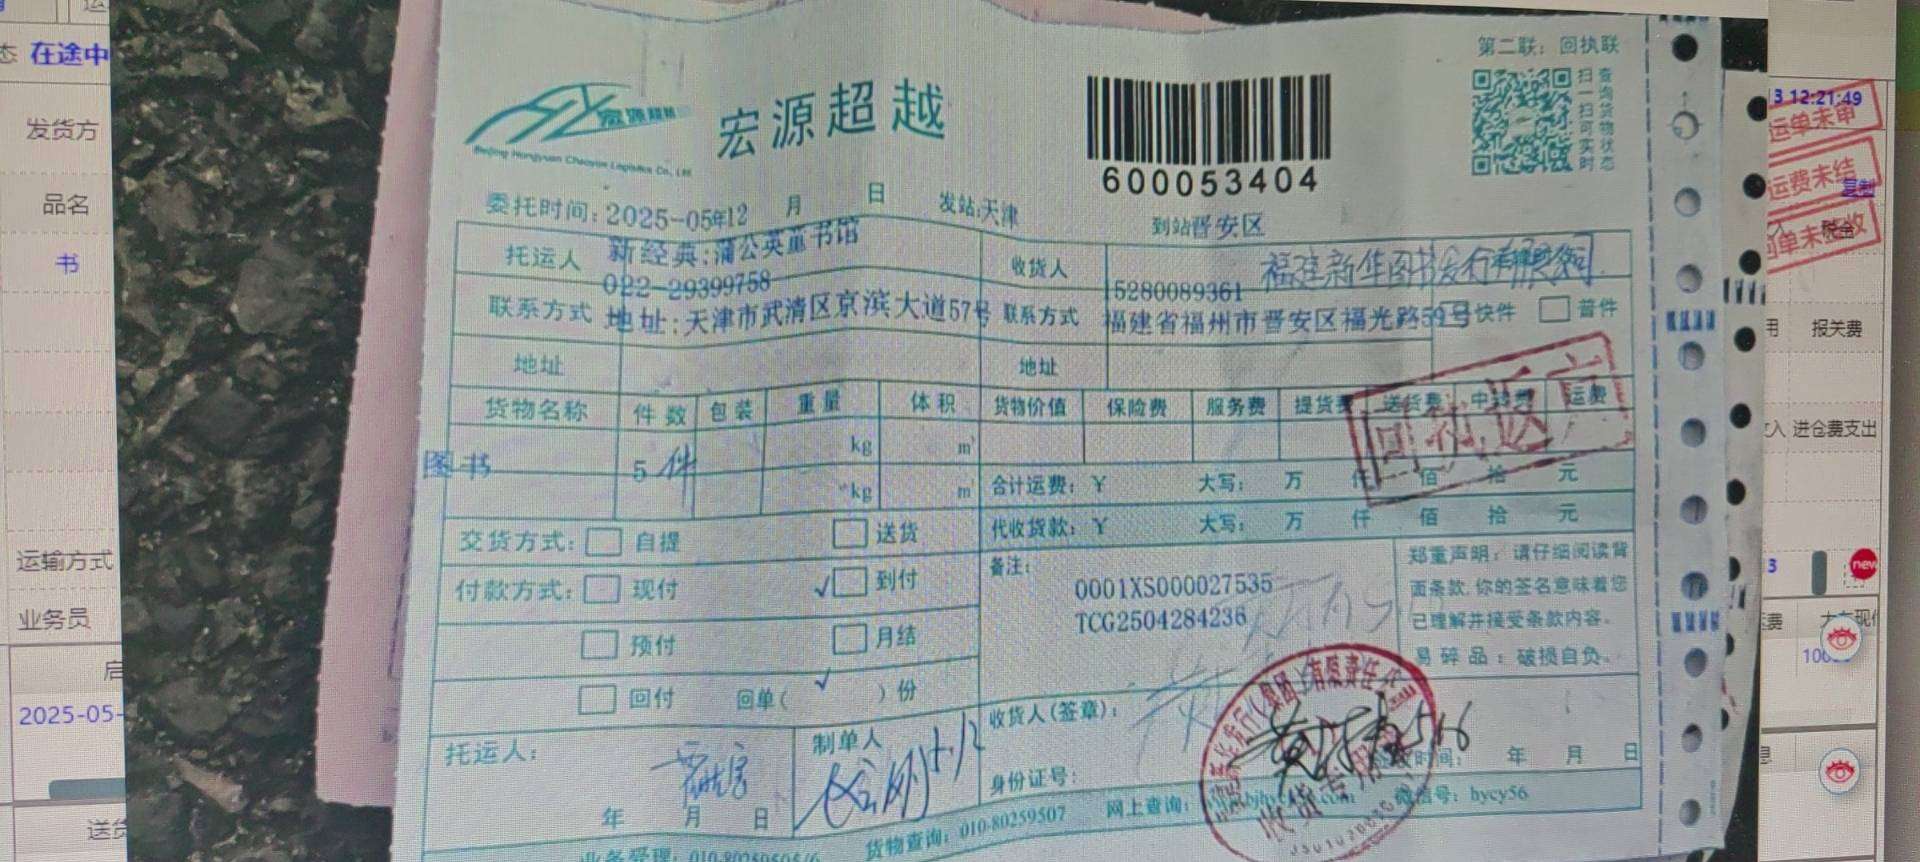 在途中
发货方
品名
书
运输方式
业务员
2025-05-
第二联：回执联
宏源超越
Beijing Hongyuan Chaoyue Logistics Co., Ltd
600053404
扫一扫可实时
查询货物状态
委托时间：2025-05年12 月 日 发站：天津 到站晋安区
托运人 新经典：蒲公英童书馆 收货人 福建新华图书发行有限公司
022-29399758 15280089361
联系方式 地址：天津市武清区京滨大道57号 联系方式 福建省福州市晋安区福光路59号 快件 普件
地址 地址
货物名称 件数 包装 重量 体积 货物价值 保险费 服务费 提货费 送货费 中转费 运费
图书 5件 kg m
kg m
合计运费：￥ 大写： 万 仟 佰 拾 元
代收货款：￥ 大写： 万 仟 佰 拾 元
回执返京
交货方式： 自提 送货
付款方式： 现付 √ 到付
预付 月结
回付 回单（ √ ）份
备注：
0001XS000027535
TCG2504284236
郑重声明：请仔细阅读背
面条款，你的签名意味着您
已理解并接受条款内容。
易碎品：破损自负。
托运人：
年 月 日
制单人
5.12
收货人（签章）：
身份证号：
5/16
时间： 年 月 日
收货专用章
货物查询：010-80259507 网上查询： 微信号：hycy56
3 12:21:49
运单未审
运费未结
复制
回单未签收
税金
报关费
进仓费支出
new